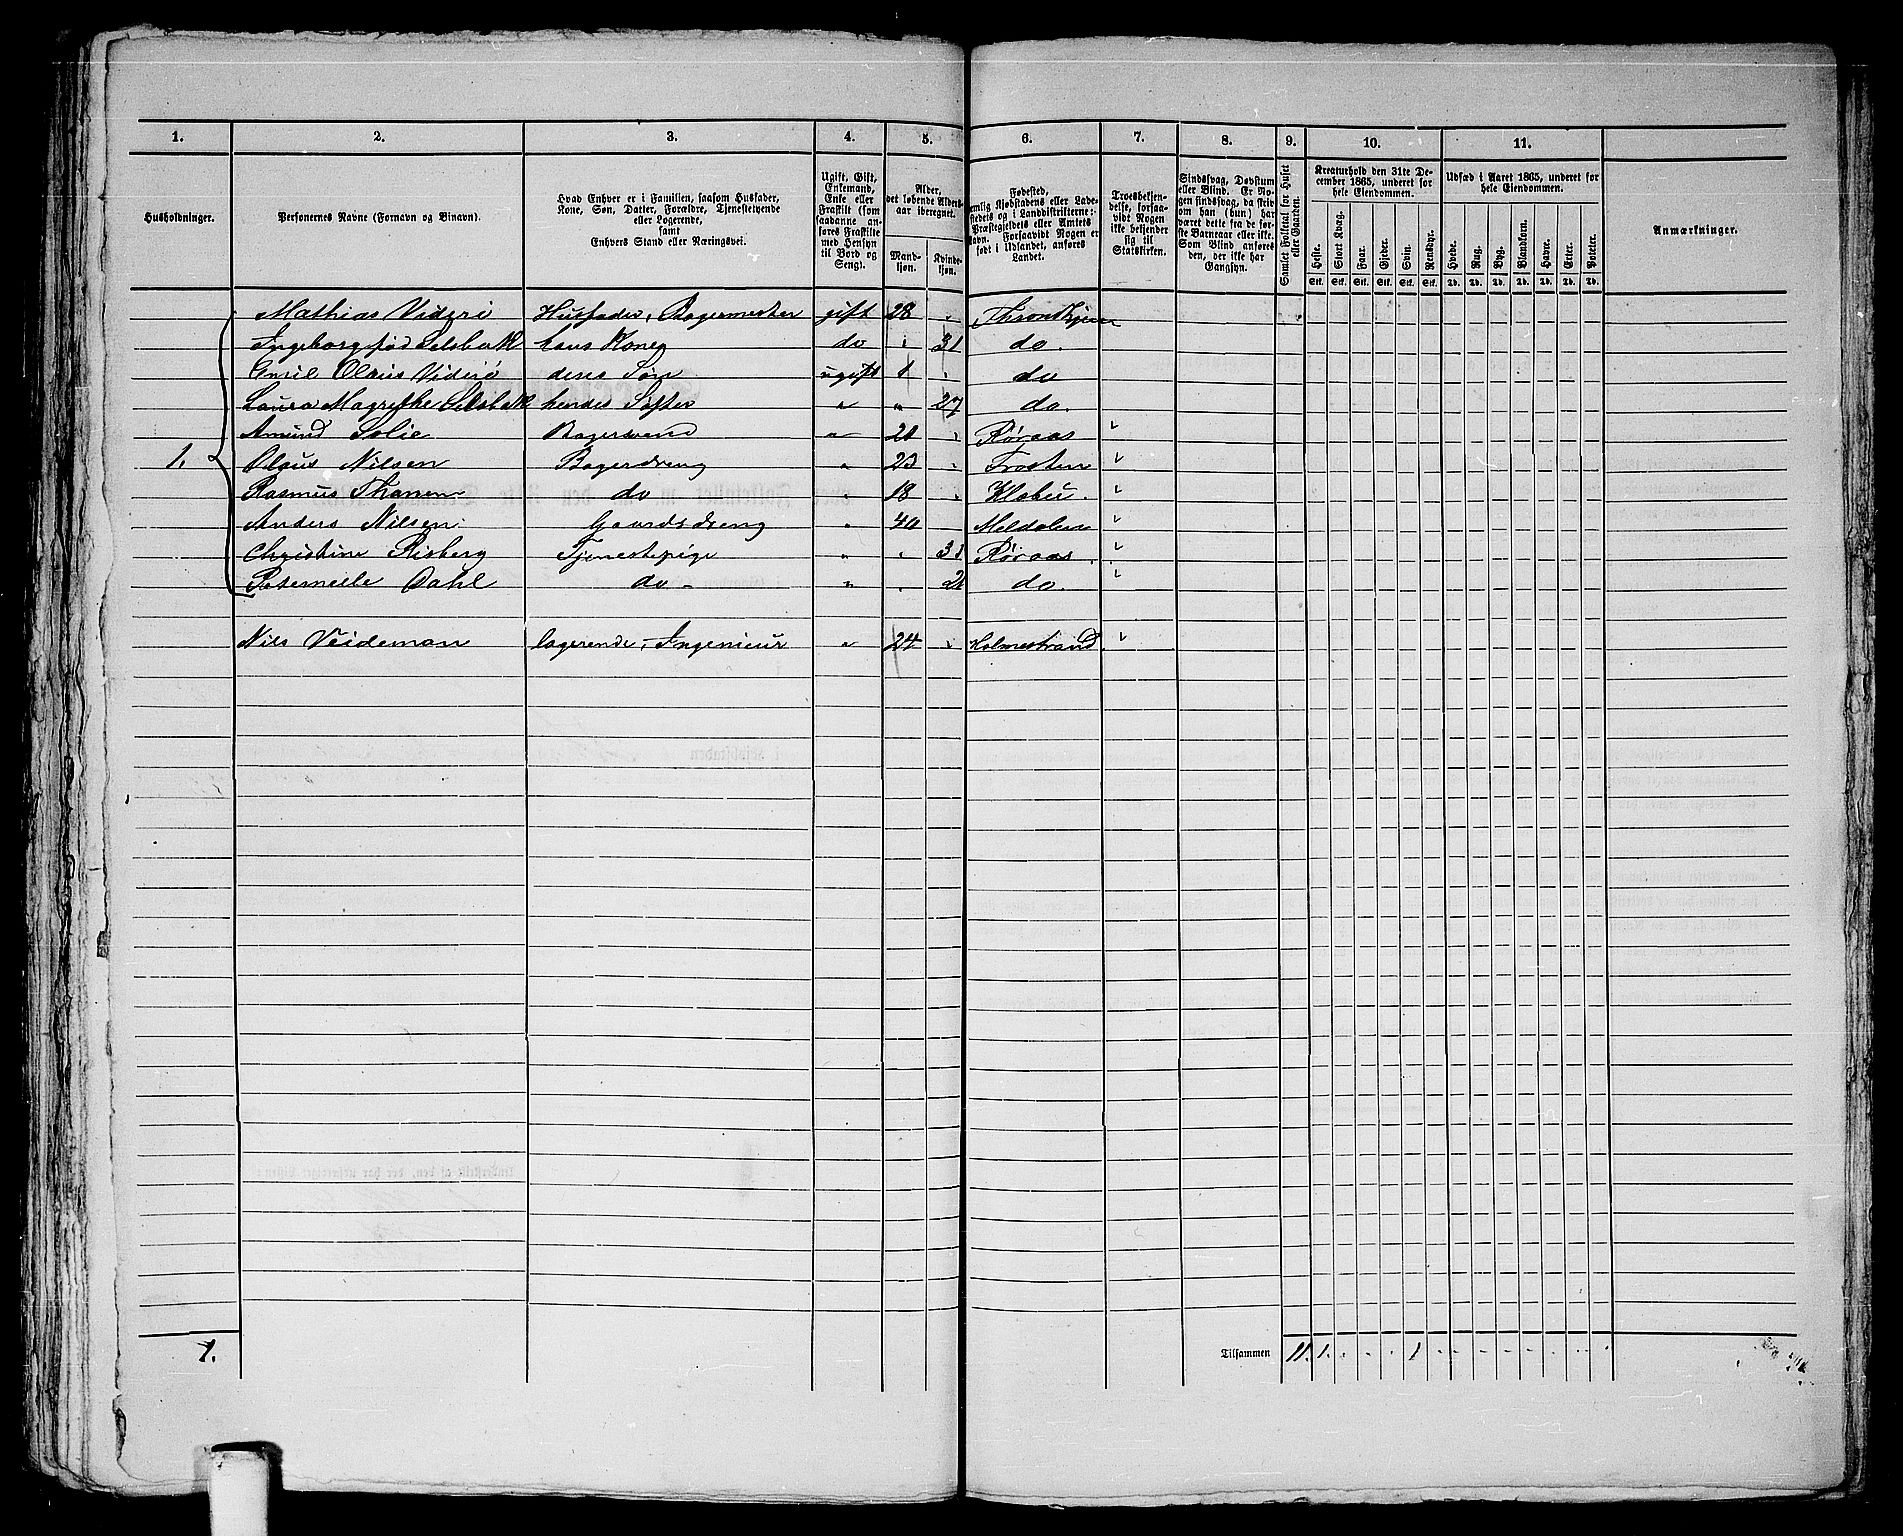 1. 2. 3. 4. 5. 6. 7. 8. 9. 10. 11.
Husholdninger.
Personernes Navne (Fornavn og Binavn).
Hvad Enhver er i Familien, saasom Husfader,
Kone, Søn, Datter, Forældre, Tjenestetyende
eller Logerende,
samt
Enhvers Stand eller Næringsvei.
Ugift, Gift,
Enkemand,
Enke eller
Fraskilt (som
saadanne an-
føres Fraskilte
med Hensyn
til Bord og
Seng).
Alder,
det løbende Alders-
aar iberegnet.
Mand-
kjøn.
Kvinde-
kjøn.
Fødested,
nemlig Kjøbstadens eller Lade-
stedets og i Landdistrikterne:
Præstegjeldets eller Amtets
Navn. Forsaavidt Nogen er
født i Udlandet, anføres
Landet.
Troesbekjen-
delse, forsaa-
vidt Nogen
ikke bekjender
sig til
Statskirken.
Sindssvag, Døvstum
eller Blind. Er No-
gen sindssvag, da skriv
om han (hun) har
været dette fra de før-
ste Barneaar eller ikke.
Som Blind anføres
den, der ikke har
Gangsyn.
Samlet Folketal for Huset
eller Gaarden.
Kreaturhold den 31te De-
cember 1865, underet for
hele Eiendommen.
Heste. Stort Kvæg. Faar. Gjeder. Svin. Rensdyr.
Stk. Stk. Stk. Stk. Stk. Stk.
Udsæd i Aaret 1865, underet for
hele Eiendommen.
Hvede. Rug. Byg. Blandkorn. Havre. Erter. Poteter.
Td. Td. Td. Td. Td. Td. Td.
Anmærkninger.
Mathias Viderö Husfader, Bagermester gift 28 " Throndhjem
Ingeborg fød Selsbak hans Kone do " 31 do.
Emil Olaus Viderö deres Søn ugift 1 " do
Laura Magrethe Selsbak hendes Søster " " 27 do.
Amund Solie Bagersvend " 21 " Røraas "
1. Olaus Nilsen Bagerdreng " 23 " Frosten "
Rasmus Thanem do " 18 " Klæbu. "
Anders Nilsen Gaardsdreng " 40 Meldalen "
Christine Risberg Tjenestepige " " 31 Røraas. "
Dahl do - " " 21 do. "
Nils Veideman logerende, Ingenieur " 24 " Holmestrand. "
1.
Tilsammen 11. 1. " " " 1 " " " " " " " "